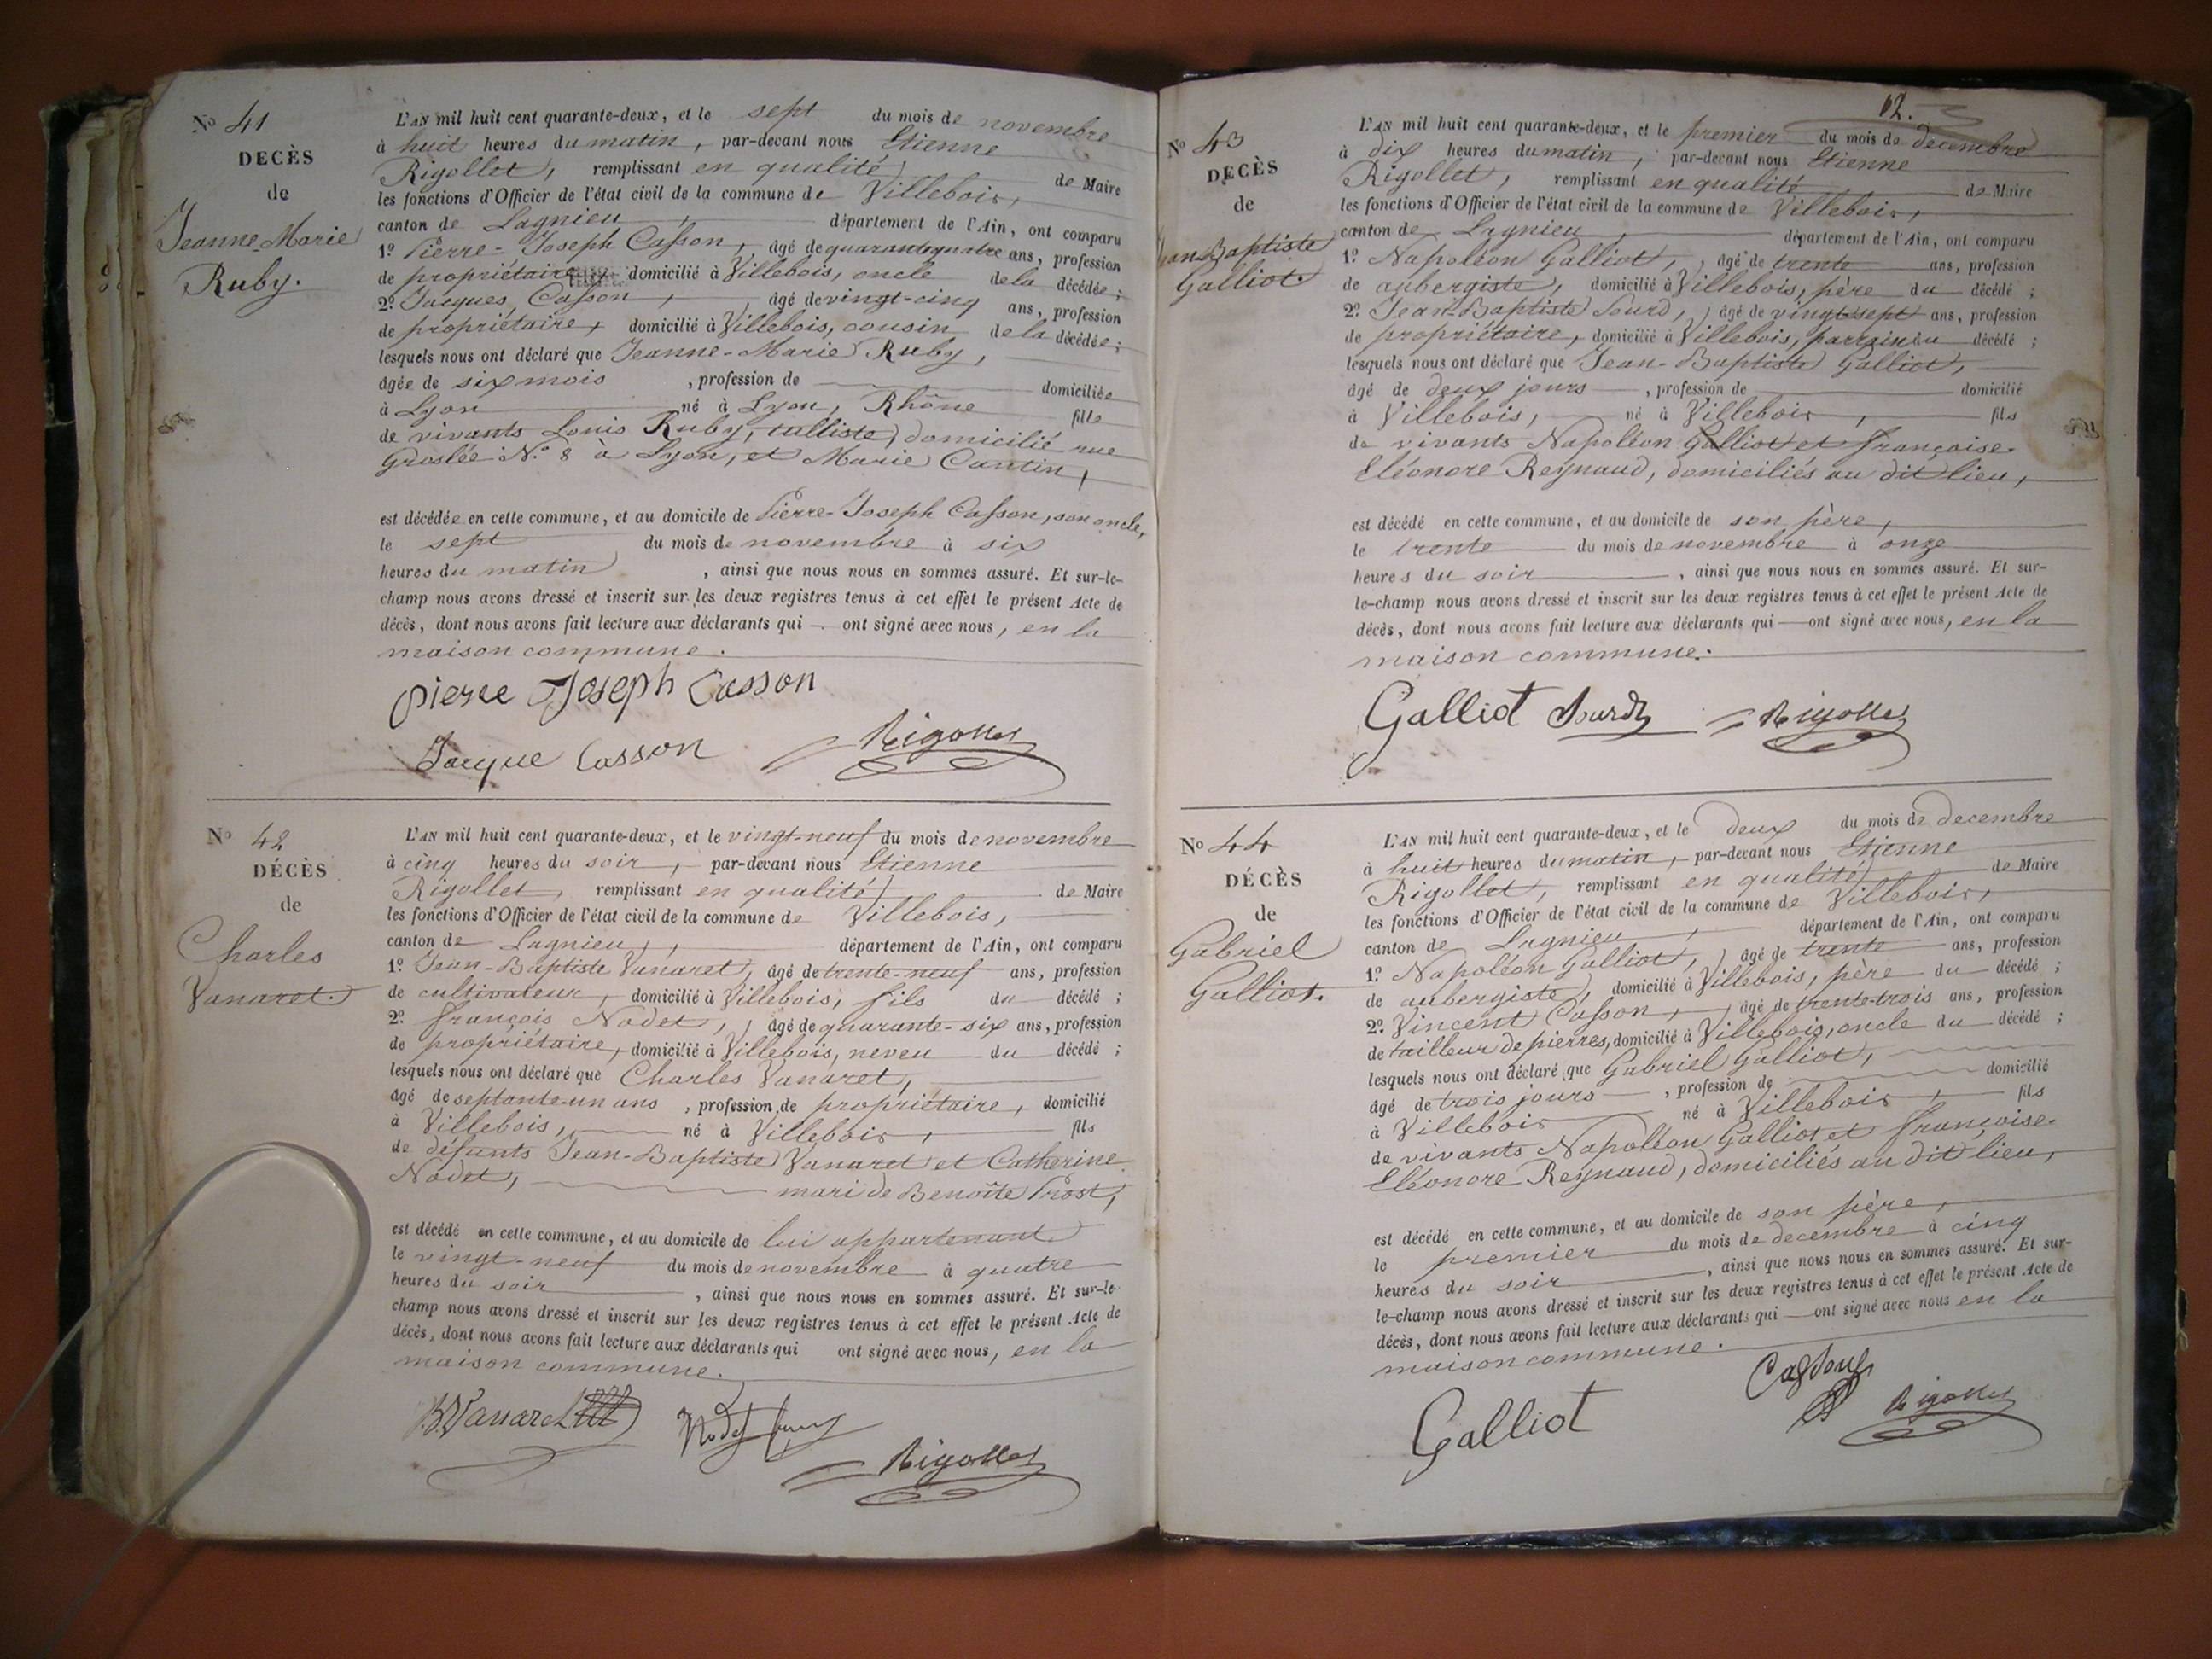 No 41
DECÈS
de
Jeanne-Marie
Ruby.
L'AN mil huit cent quarante-deux, et le sept du mois de novembre
à huit heures du matin, par-devant nous Etienne
Rigollet, remplissant en qualité de Maire
les fonctions d'Officier de l'état civil de la commune de Villebois,
canton de Lagnieu, département de l'Ain, ont comparu
1o Pierre-Joseph Casson, âgé de quarante quatre ans, profession
de propriétaire domicilié à Villebois, oncle de la décédée;
2o Jacques Casson, âgé de vingt-cinq ans, profession
de propriétaire, domicilié à Villebois, cousin de la décédée;
lesquels nous ont déclaré que Jeanne-Marie Ruby,
âgée de six mois, profession de domiciliée
à Lyon né à Lyon, Rhône fille
de vivants Louis Ruby, tulliste, domicilié rue
Groslée No 8 à Lyon, et Marie Cantin,
est décédée en cette commune, et au domicile de Pierre-Joseph Casson, son oncle,
le sept du mois de novembre à six
heures du matin, ainsi que nous nous en sommes assuré. Et sur-le-
champ nous avons dressé et inscrit sur les deux registres tenus à cet effet le présent Acte de
décès, dont nous avons fait lecture aux déclarants qui — ont signé avec nous, en la
maison commune.
pierre Joseph Casson
Jacque Casson Rigollet
No 42
DÉCÈS
de
Charles
Vanaret.
L'AN mil huit cent quarante-deux, et le vingt-neuf du mois de novembre
à cinq heures du soir, par-devant nous Etienne
Rigollet, remplissant en qualité de Maire
les fonctions d'Officier de l'état civil de la commune de Villebois,
canton de Lagnieu, département de l'Ain, ont comparu
1o Jean-Baptiste Vanaret, âgé de trente-neuf ans, profession
de cultivateur, domicilié à Villebois, fils du décédé;
2o François Nodet, âgé de quarante-six ans, profession
de propriétaire, domicilié à Villebois, neveu du décédé;
lesquels nous ont déclaré que Charles Vanaret,
âgé de septante-un ans, profession de propriétaire, domicilié
à Villebois, né à Villebois, fils
de défunts Jean-Baptiste Vanaret et Catherine
Nodet, mari de Benoîte Prost,
est décédé en cette commune, et au domicile de lui appartenant
le vingt-neuf du mois de novembre à quatre
heures du soir, ainsi que nous nous en sommes assuré. Et sur-le-
champ nous avons dressé et inscrit sur les deux registres tenus à cet effet le présent Acte de
décès, dont nous avons fait lecture aux déclarants qui ont signé avec nous, en la
maison commune.
Vanaret Nodet Rigollet
12.
No 43
DECÈS
de
Jean Baptiste
Galliot.
L'AN mil huit cent quarante-deux, et le premier du mois de décembre
à dix heures du matin, par-devant nous Etienne
Rigollet, remplissant en qualité de Maire
les fonctions d'Officier de l'état civil de la commune de Villebois,
canton de Lagnieu, département de l'Ain, ont comparu
1o Napoléon Galliot, âgé de trente ans, profession
de aubergiste, domicilié à Villebois, père du décédé;
2o Jean-Baptiste Sourd, âgé de vingt-sept ans, profession
de propriétaire, domicilié à Villebois, parrain du décédé;
lesquels nous ont déclaré que Jean-Baptiste Galliot,
âgé de deux jours, profession de domicilié
à Villebois, né à Villebois, fils
de vivants Napoléon Galliot et Françoise
Eléonore Reynaud, domiciliés au dit lieu,
est décédé en cette commune, et au domicile de son père,
le trente du mois de novembre à onze
heures du soir, ainsi que nous nous en sommes assuré. Et sur-
le-champ nous avons dressé et inscrit sur les deux registres tenus à cet effet le présent Acte de
décès, dont nous avons fait lecture aux déclarants qui — ont signé avec nous, en la
maison commune.
Galliot Sourd Rigollet
No 44
DÉCÈS
de
Gabriel
Galliot.
L'AN mil huit cent quarante-deux, et le deux du mois de decembre
à huit heures du matin, par-devant nous Etienne
Rigollet, remplissant en qualité de Maire
les fonctions d'Officier de l'état civil de la commune de Villebois,
canton de Lagnieu, département de l'Ain, ont comparu
1o Napoléon Galliot, âgé de trente ans, profession
de aubergiste, domicilié à Villebois, père du décédé;
2o Vincent Casson, âgé de trente-trois ans, profession
de tailleur de pierres, domicilié à Villebois, oncle du décédé;
lesquels nous ont déclaré que Gabriel Galliot,
âgé de trois jours, profession de domicilié
à Villebois né à Villebois, fils
de vivants Napoléon Galliot et Françoise
Eléonore Reynaud, domiciliés au dit lieu,
est décédé en cette commune, et au domicile de son père,
le premier du mois de decembre à cinq
heures du soir, ainsi que nous nous en sommes assuré. Et sur-
le-champ nous avons dressé et inscrit sur les deux registres tenus à cet effet le présent Acte de
décès, dont nous avons fait lecture aux déclarants qui — ont signé avec nous en la
maison commune.
Galliot Casson Rigollet